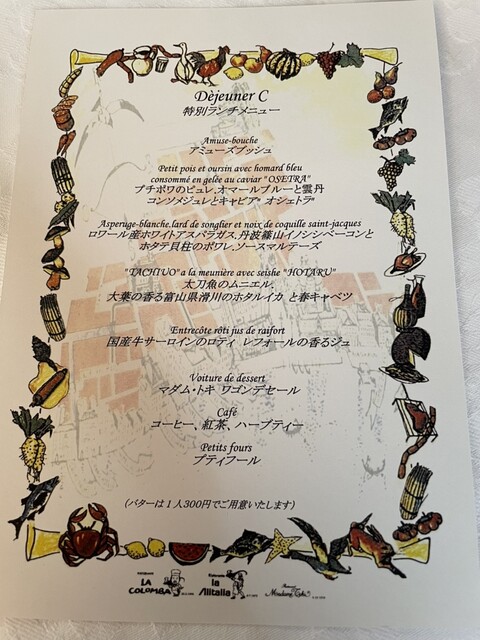 Dèjeuner C
特別ランチメニュー
Amuse-bouche
アミューズブッシュ
Petit pois et oursin avec homard bleu
consommé en gelée au caviar "OSETRA"
プチポワのピュレ,オマールブルーと雲丹
コンソメジュレとキャビア" オシェトラ"
Asperuge-blanche.lard de songlier et noix de coquille saint-jacques
ロワール産ホワイトアスパラガス,丹波篠山イノシシベーコンと
ホタテ貝柱のポワレ,ソースマルテーズ
"TACHIUO" a la meunière avec seishe "HOTARU"
太刀魚のムニエル,
大葉の香る富山県滑川のホタルイカ と春キャベツ
Entrecôte rôti jus de raifort
国産牛サーロインのロティ レフォールの香るジュ
Voiture de dessert
マダム・トキ ワゴンデセール
Café
コーヒー、紅茶、ハーブティー
Petits fours
プティフール
(バターは１人300円でご用意いたします)
LA COLOMBA
la Alitalia
Madame Toki